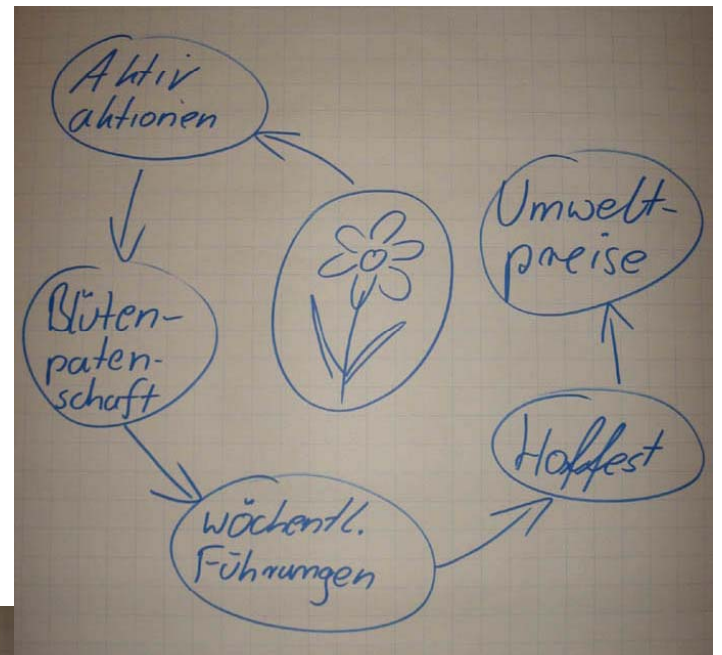 Aktiv
aktionen
Blüten-
paten-
schaft
wöchentl.
Führungen
Hoffest
Umwelt-
preise